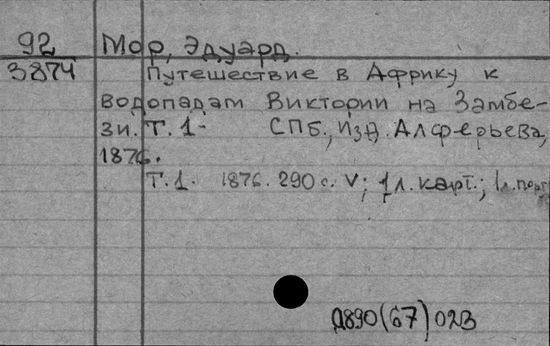 92 Мор, Эдуард.
3874 Путешествие в Африку к
водопадам Виктории на Замбе-
зи. Т. 1- СПб., изд. Алферьева,
1876.
Т.1. 1876. 290 с. V; 1 л. карт.; 1 л. порт
Д890(67)023